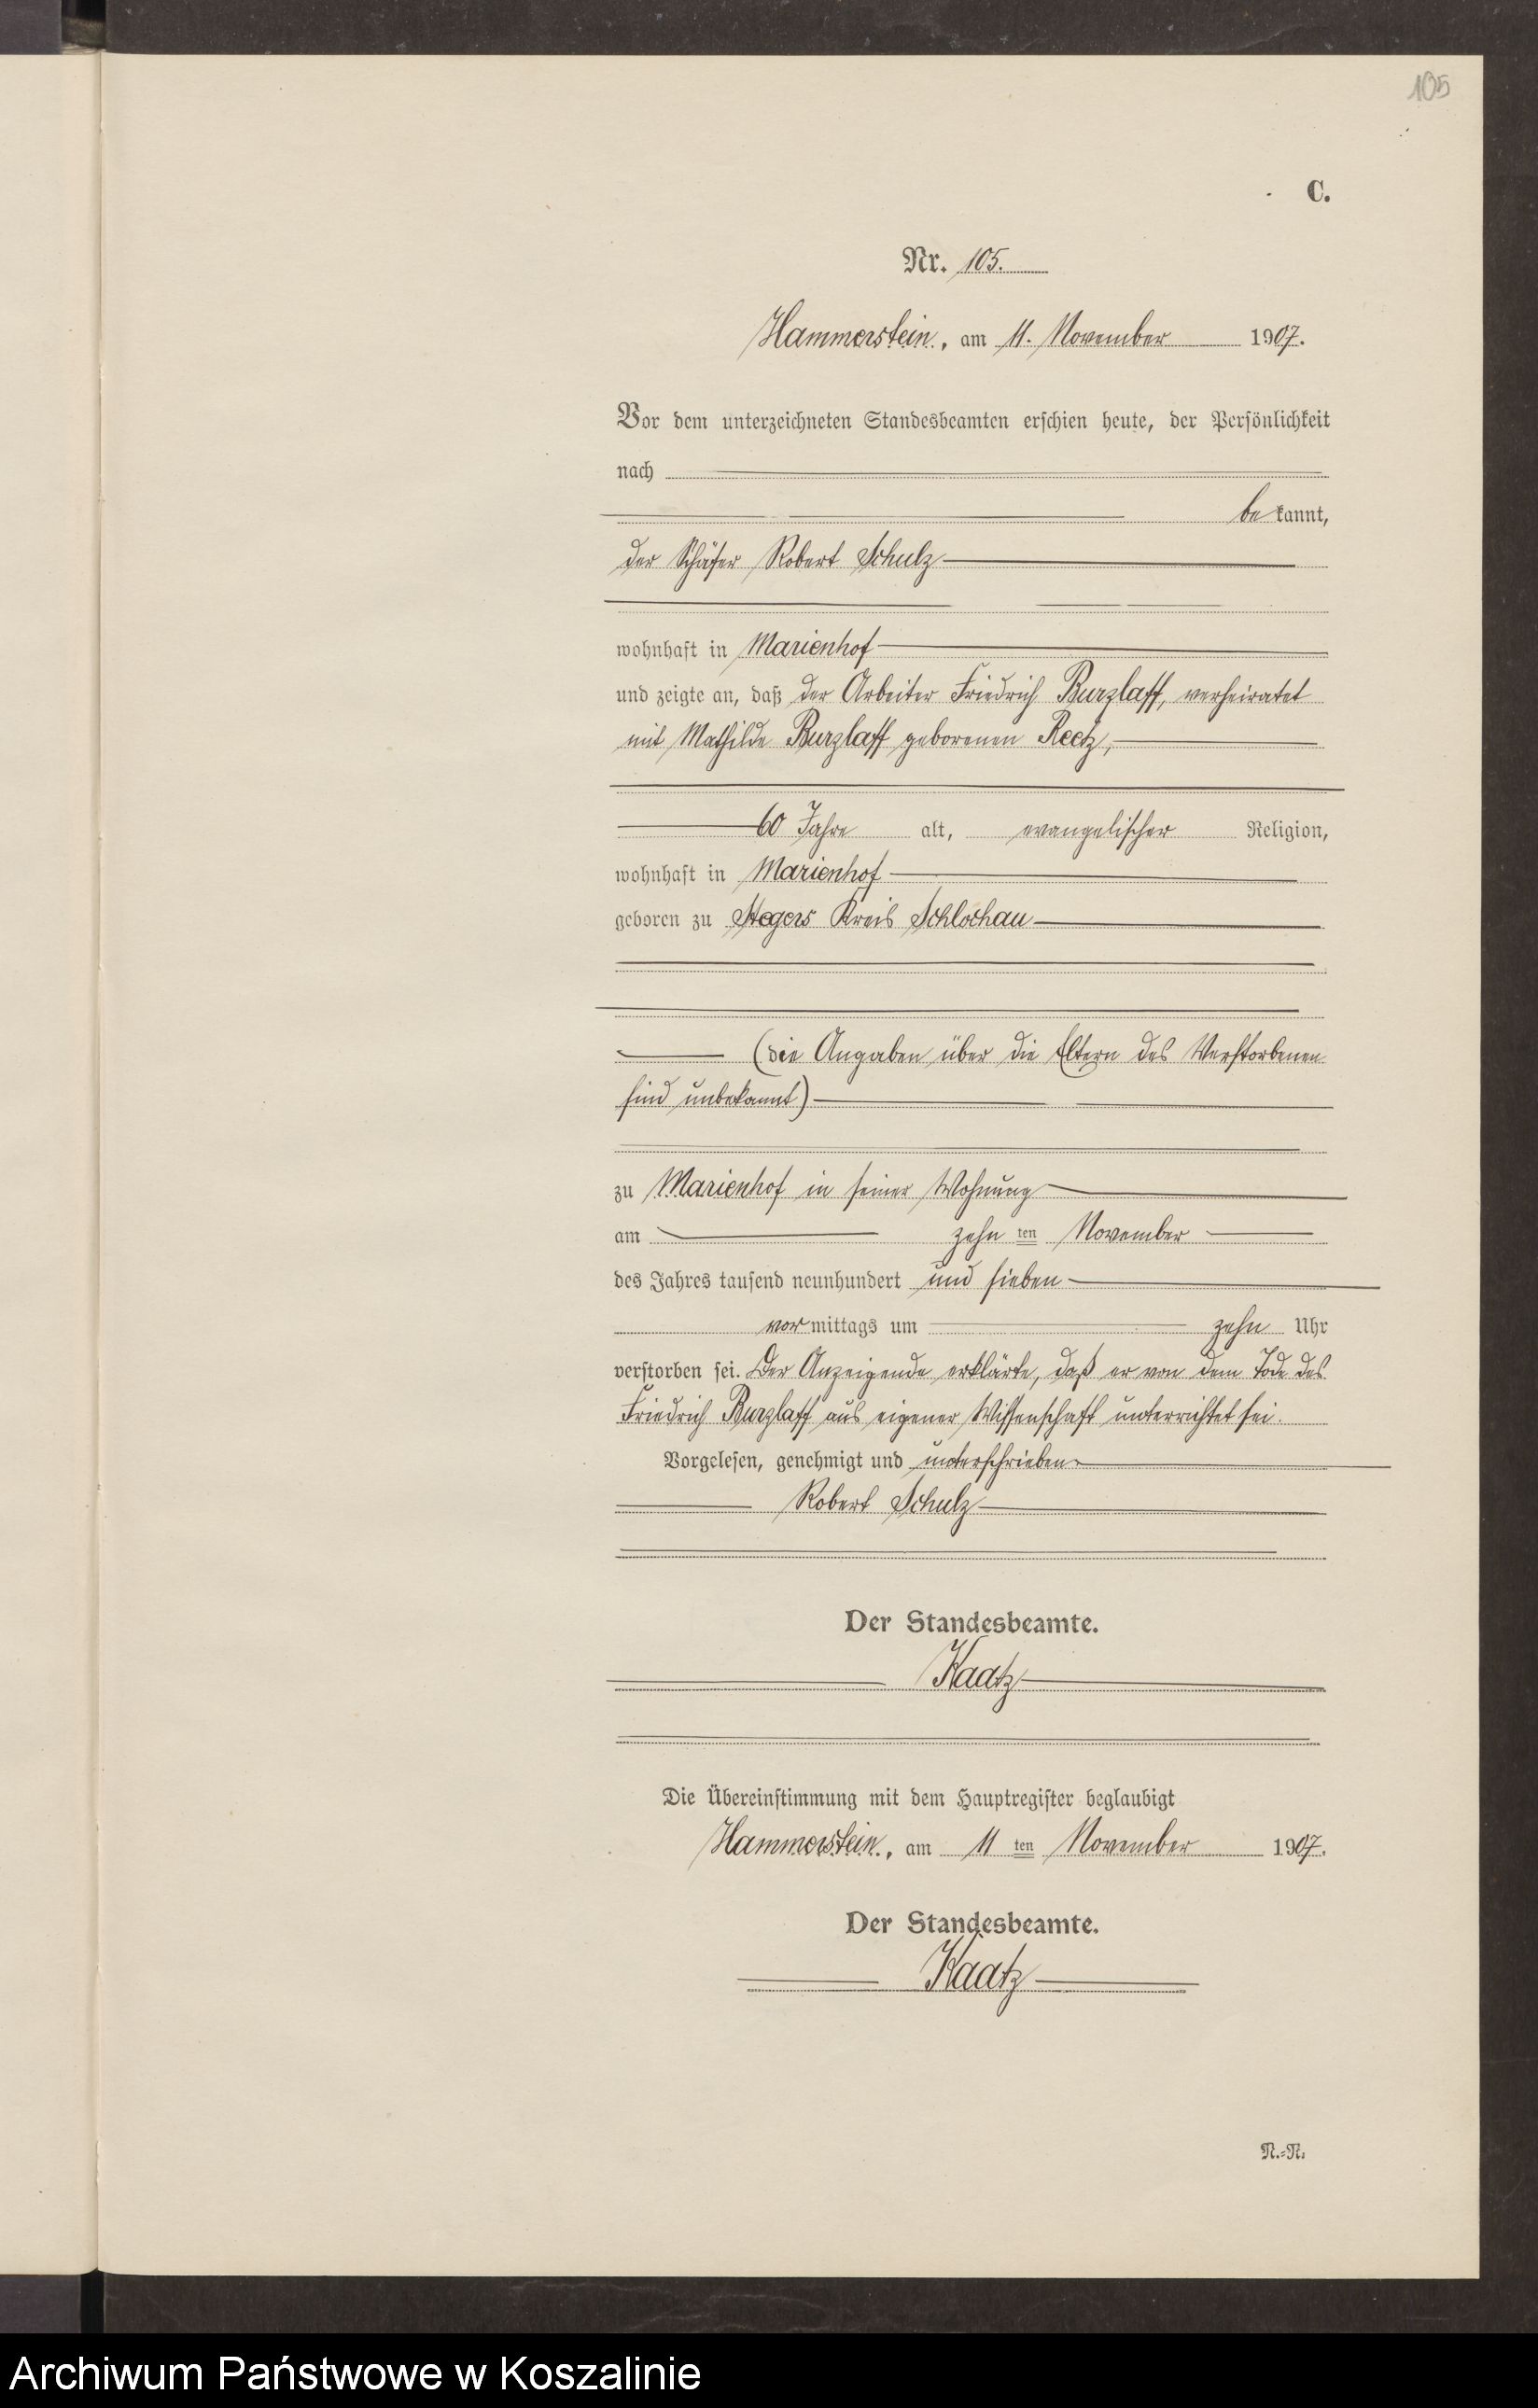 105
C.
Nr. 105.
Hammerstein, am 11. November 1907.
Vor dem unterzeichneten Standesbeamten erschien heute, der Persönlichkeit
nach
bekannt,
der Schäfer Robert Schulz
wohnhaft in Marienhof
und zeigte an, daß der Arbeiter Friedrich Burzlaff, verheiratet
mit Mathilde Burzlaff geborenen Reetz,
60 Jahre alt, evangelischer Religion,
wohnhaft in Marienhof
geboren zu Stegers Kreis Schlochau
(die Angaben über die Eltern des Verstorbenen
sind unbekannt)
zu Marienhof in seiner Wohnung
am zehn ten November
des Jahres tausend neunhundert und sieben
vormittags um zehn Uhr
verstorben sei. Der Anzeigende erklärte, daß er von dem Tode des
Friedrich Burzlaff aus eigener Wissenschaft unterrichtet sei.
Vorgelesen, genehmigt und unterschrieben
Robert Schulz
Der Standesbeamte.
Kaatz
Die Übereinstimmung mit dem Hauptregister beglaubigt
Hammerstein, am 11 ten November 1907.
Der Standesbeamte.
Kaatz
N.-N.
Archiwum Państwowe w Koszalinie